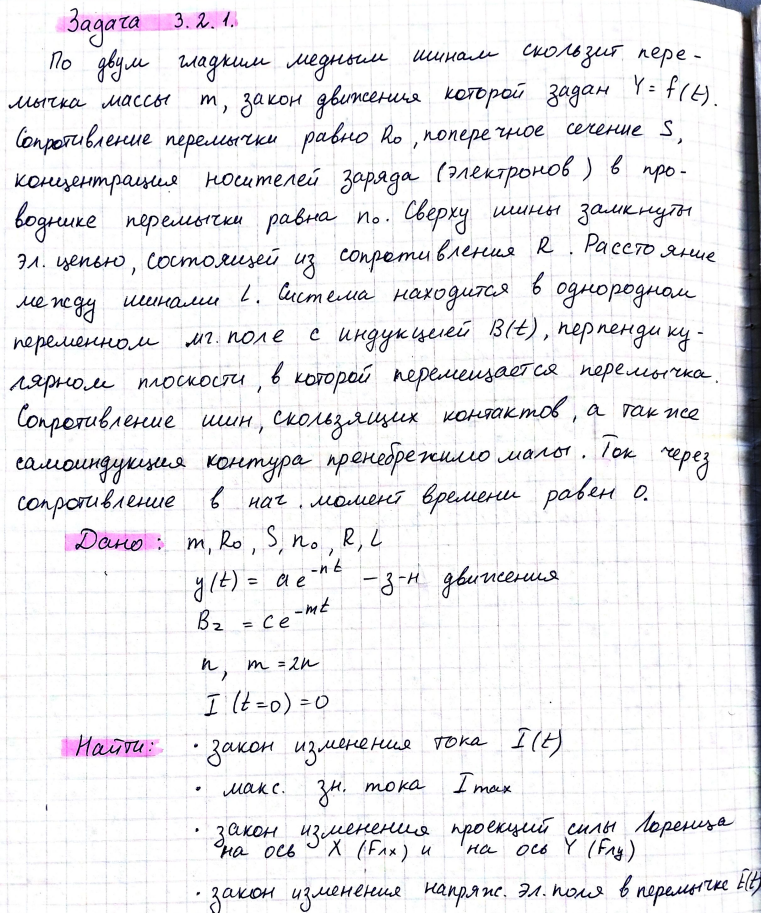 Задача 3.2.1.
По двум гладким медным шинам скользит пере-
мычка массы m, закон движения которой задан Y = f(t).
Сопротивление перемычки равно R₀, поперечное сечение S,
концентрация носителей заряда (электронов) в про-
воднике перемычки равна n₀. Сверху шины замкнуты
эл. цепью, состоящей из сопротивления R. Расстояние
между шинами L. Система находится в однородном
переменном мг. поле с индукцией B(t), перпендику-
лярном плоскости, в которой перемещается перемычка.
Сопротивление шин, скользящих контактов, а также
самоиндукция контура пренебрежимо малы. Ток через
сопротивление в нач. момент времени равен 0.
Дано: m, R₀, S, n₀, R, L
y(t) = ae^{-nt} - з-н движения
B_z = ce^{-mt}
n, m = 2n
I (t=0) = 0
Найти: · закон изменения тока I(t)
· макс. зн. тока I max
· закон изменения проекций силы Лоренца
на ось X (Fлx) и на ось Y (Fлy)
· закон изменения напряж. эл. поля в перемычке E(t)